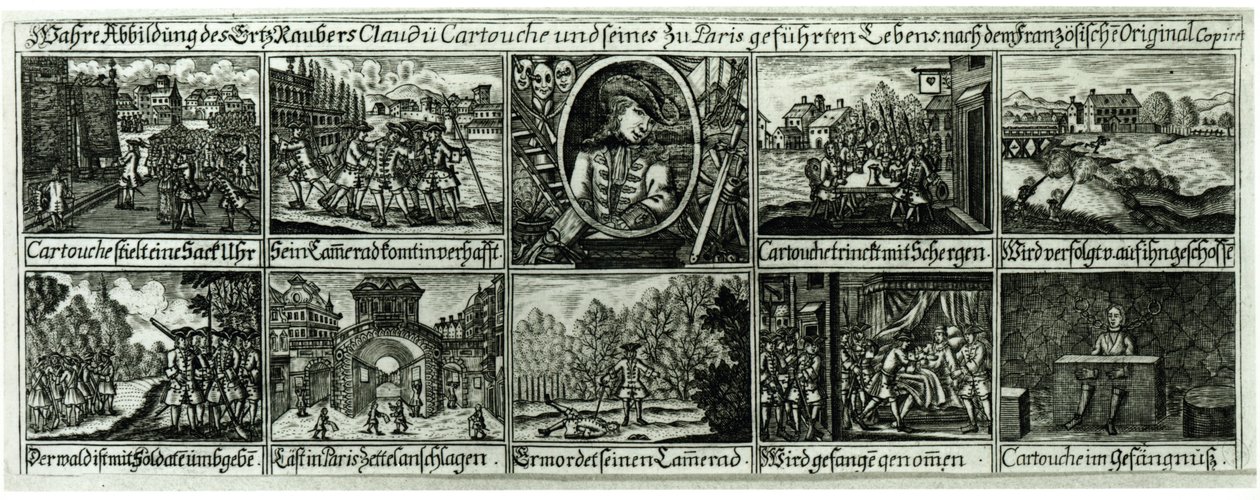 Wahre Abbildung des Ertz Raubers Claudü Cartouche und seines zu Paris geführten Lebens, nach dem Französischē Original Copiret
Cartouche stielt eine Sack Uhr
Sein Cam̄erad komt in verhafft.
Cartouche trinckt mit Schergen.
Wird verfolgt v. auf ihn geschossē
Der wald ist mit Soldatē ümbgebē.
Läst in Paris Zettel anschlagen.
Ermordet seinen Cam̄erad
Wird gefangē genom̄en.
Cartouche im Gefängnüß.